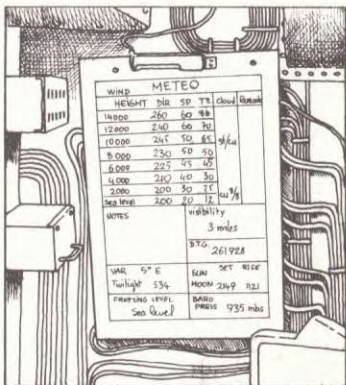 METEO
WIND
HEIGHT DIR SP TR cloud Remark
14000 260 60
12000 240 60 70
10000 245 50 65 st/cu
8000 230 50 50
6000 225 45 40
4000 210 40 30
2000 200 30 25 cu 3/8
Sea level 200 20 12
NOTES
visibility
3 miles
D.T.G.
261928
VAR 5° E
Twilight 534
SUN SET RISE
MOON 2149 1121
FREEZING LEVEL
Sea level
BARO
PRESS 935 mbs